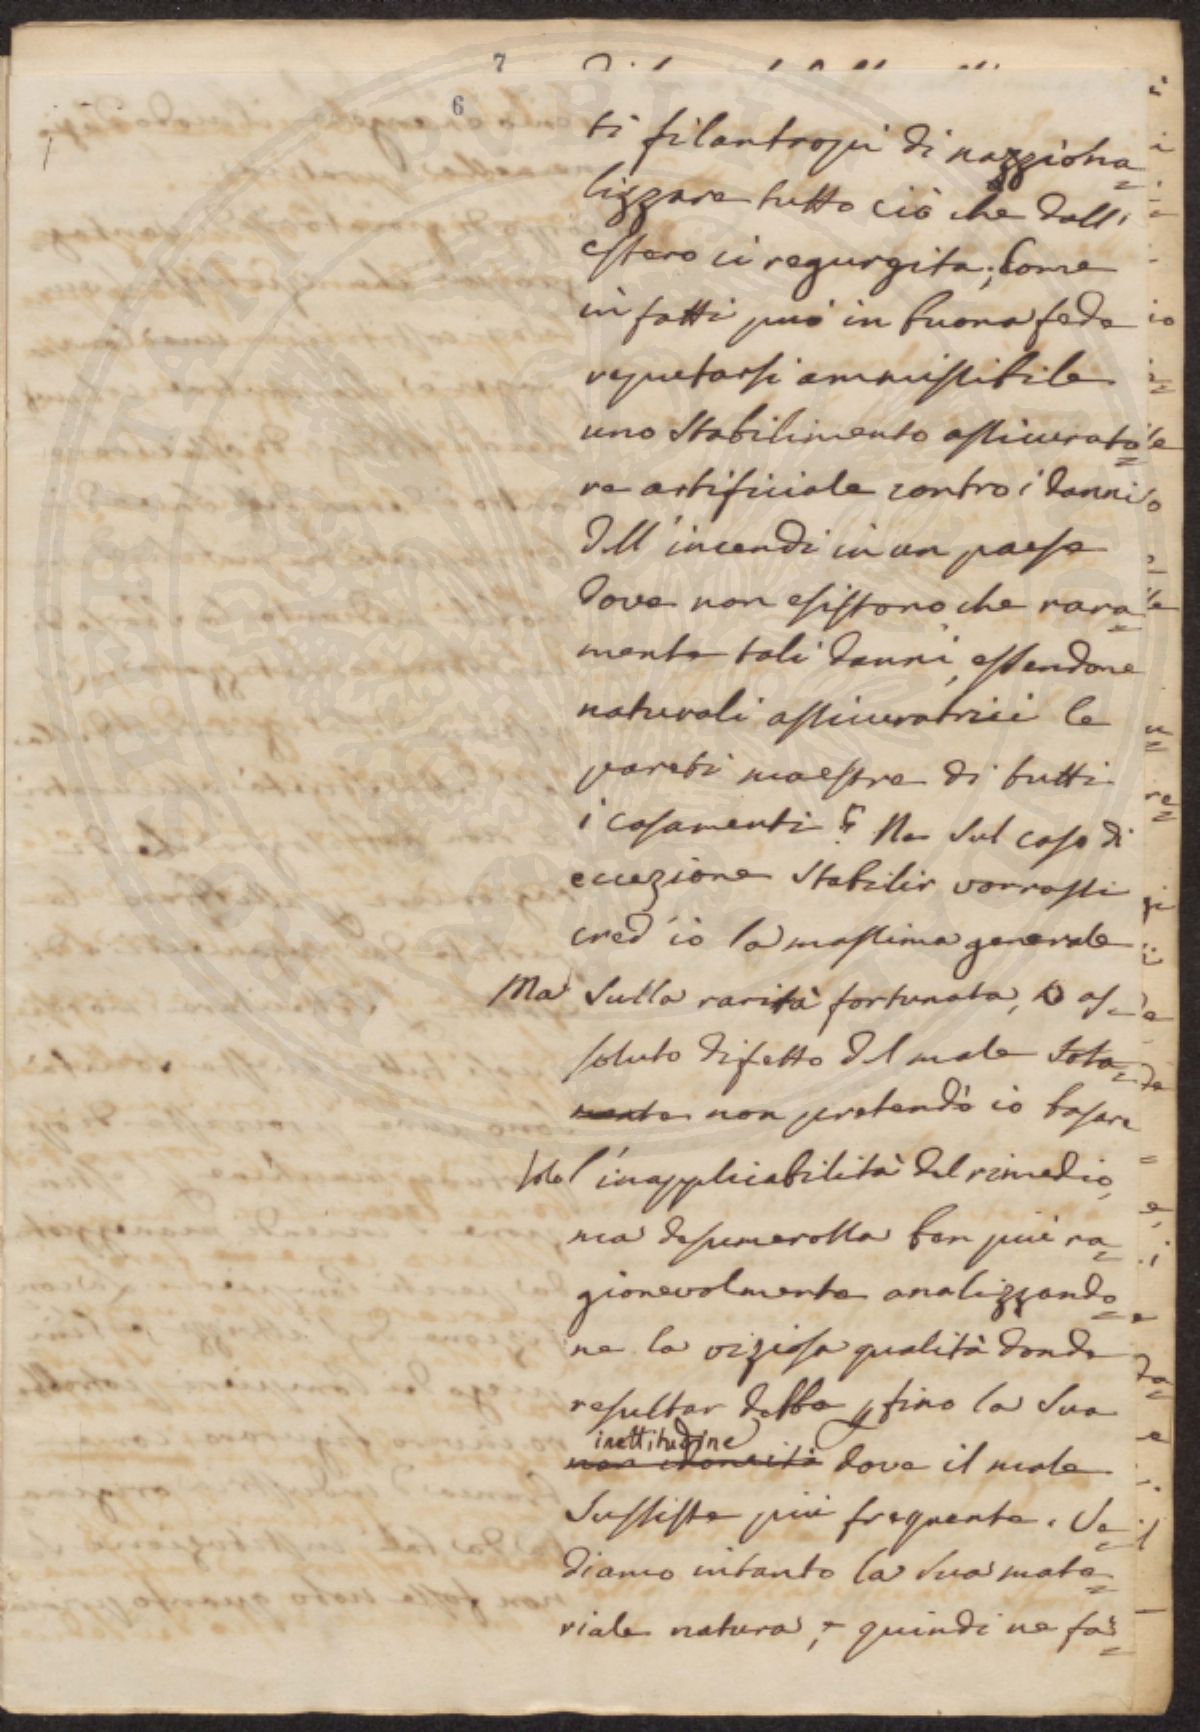 7
6
ti filantropii di nazziona=
lizzare tutto ciò che dall'
estero ci regurgita; Come
in fatti può in buona fede
reputarsi ammissibile
uno Stabilimento assicurato=
re artificiale contro i danni
dell'incendi in un paese
dove non esistono che rara=
mente tali danni, essendone
naturali assicuratrici le
pareti maestre di tutti
i casamenti? Ne sul caso di
eccezione Stabilir vorrassi
cred'io la massima generale
Ma Sulla rarità fortunata, o as=
soluto difetto del male Sola=
mente non pretendo io basare
solo l'inapplicabilità del rimedio,
ma desumerolla ben più ra=
gionevolmente analizzando=
ne la viziosa qualità donde
resultar debba pfino la Sua
inettitudine
non idoneità dove il male
Sussiste più frequente. Ve=
diamo intanto la Sua mate=
riale natura, e quindi ne fa=